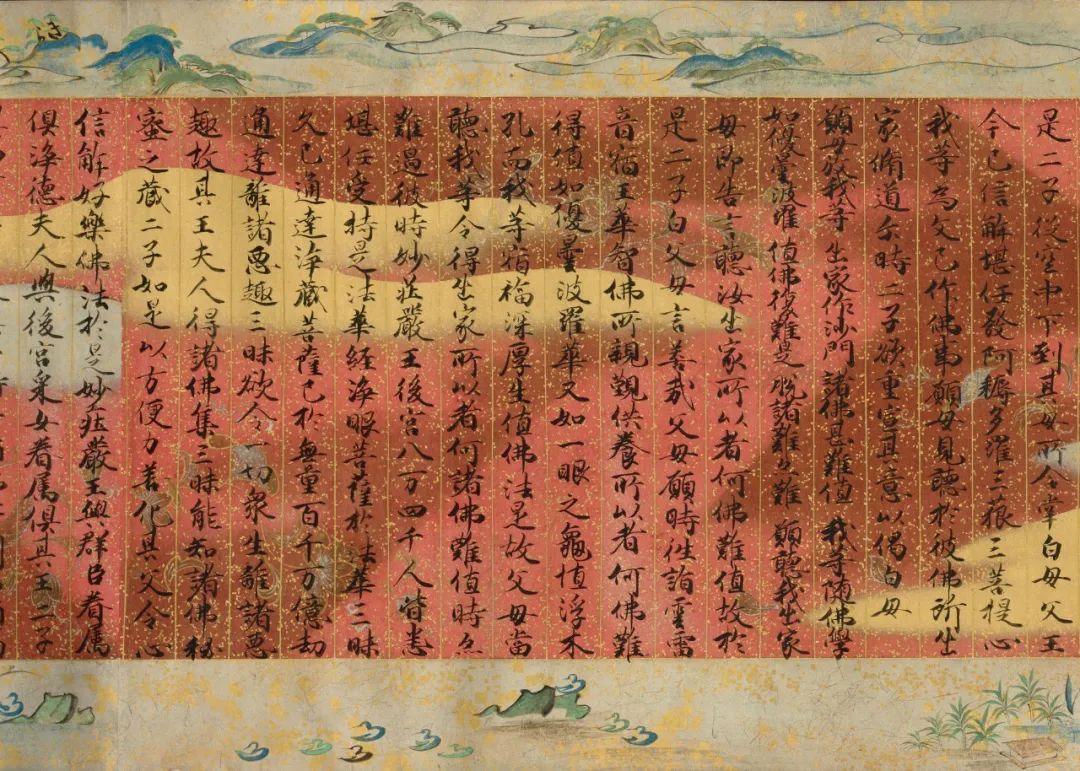 是二子從空中下到其母所合掌白母父王
今已信解堪任發阿耨多羅三藐三菩提心
我等為父已作佛事願母見聽於彼佛所出
家脩道尒時二子欲重宣其意以偈白母
願母放我等 出家作沙門 諸佛甚難值 我等随佛學
如優曇波羅 值佛復難是 脱諸難亦難 願聽我出家
母即告言聽汝出家所以者何佛難值故於
是二子白父母言善哉父母願時往詣雲雷
音宿王華智佛所親覲供養所以者何佛難
得值如優曇波羅華又如一眼之龜值浮木
孔而我等宿福深厚生值佛法是故父母當
聽我等令得出家所以者何諸佛難值時亦
難遇彼時妙莊嚴王後宮八万四千人皆悉
堪任受持是法華經淨眼菩薩於法華三昧
久已通達淨藏菩薩已於無量百千万億劫
通達離諸惡趣三昧欲令一切衆生離諸惡
趣故其王夫人得諸佛集三昧能知諸佛秘
密之藏二子如是以方便力善化其父令心
信解好樂佛法於是妙莊嚴王與群臣眷属
俱淨德夫人與後宮采女眷属俱其王二子